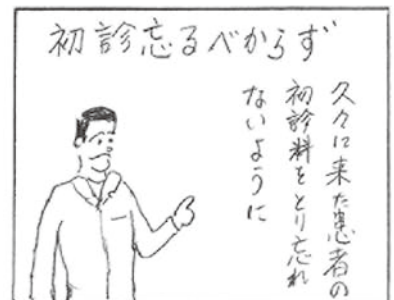 初診忘るべからず
久々に来た患者の
初診料をとり忘れ
ないように